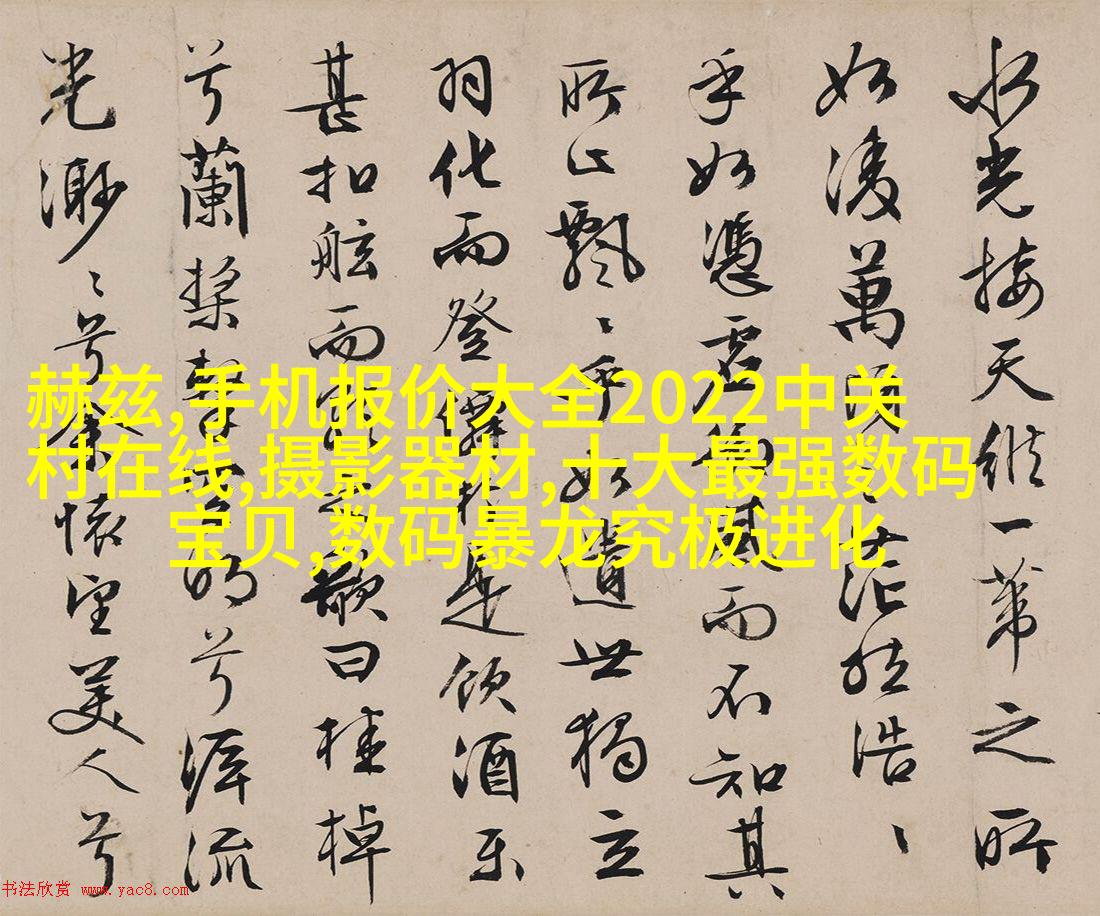 水光接天縱一葦之所
如凌萬頃之茫然浩〻
乎如憑虛御風而不知其
所止飄〻乎如遺世獨立
羽化而登僊於是飲酒樂
甚扣舷而歌之歌曰桂棹
兮蘭槳擊空明兮泝流
光渺〻兮余懷望美人兮
赫兹,手机报价大全2022中关
村在线,摄影器材,十大最强数码
宝贝,数码暴龙究极进化
书法欣赏 www.yac8.com